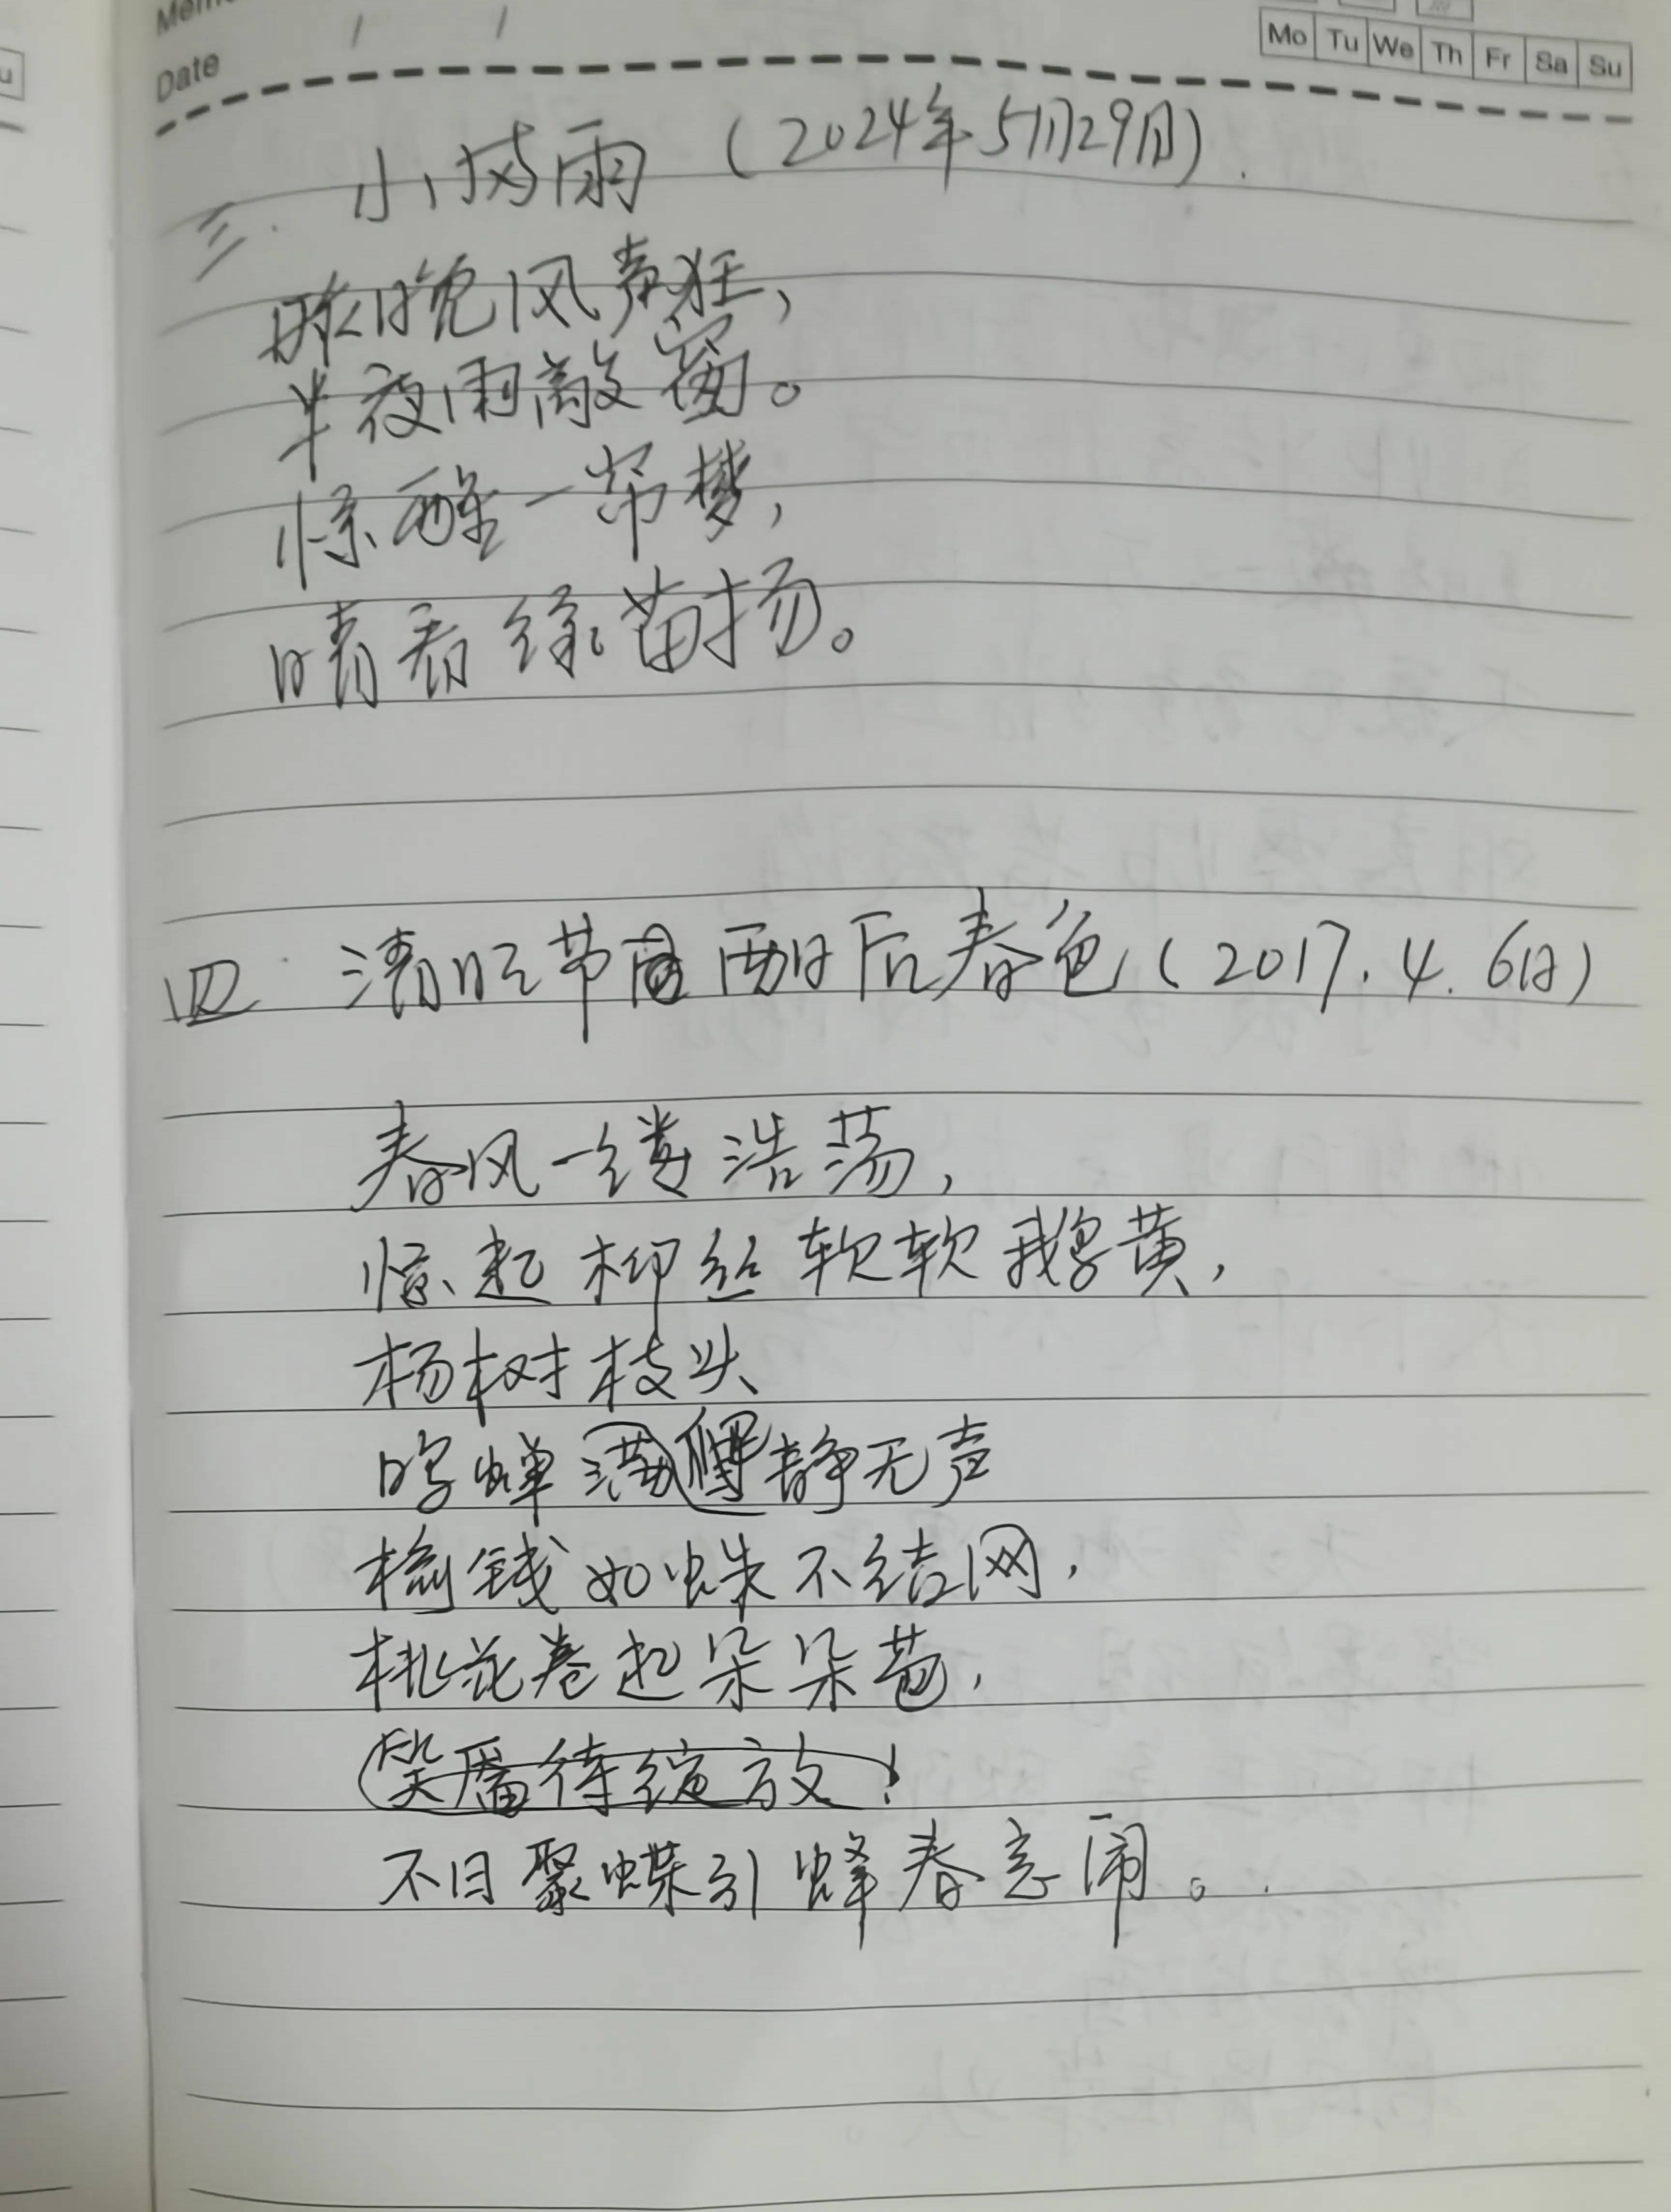 Date / /
Mo Tu We Th Fr Sa Su
三. 小风雨 (2024年5月29日).
昨晚风声狂,
半夜雨敲窗。
惊醒一帘梦,
晴看绿苗扬。
四. 清明节雨后春色(2017.4.6日)
春风一缕浩荡,
惊起柳丝软软鹅黄,
杨树枝头
鸣蝉满静无声
榆钱如蛛不结网,
桃花卷起朵朵苞,
笑靥待绽放!
不日聚蝶引蜂春意闹。